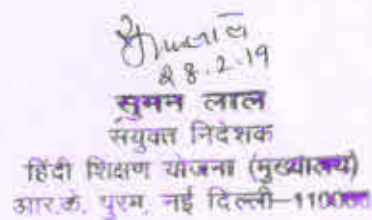 28.2.19
सुमन लाल
संयुक्त निदेशक
हिंदी शिक्षण योजना (मुख्यालय)
आर.के. पुरम, नई दिल्ली–1100